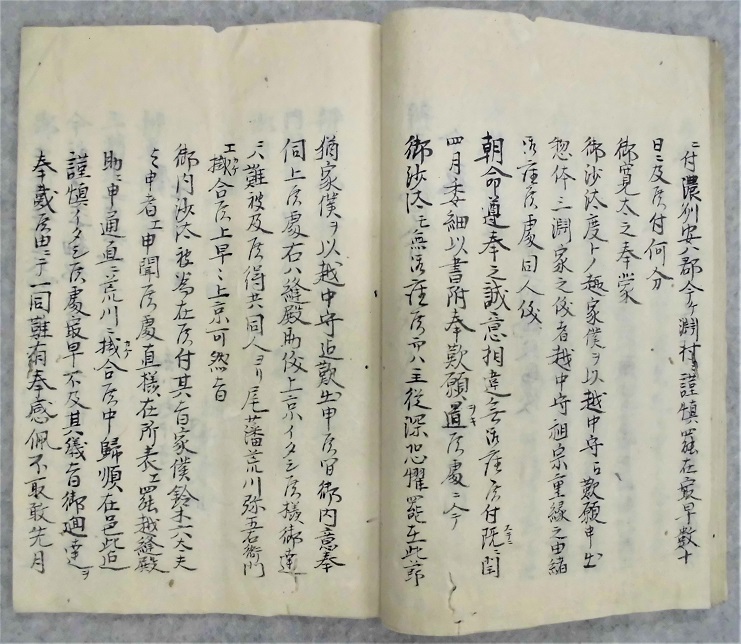 ニ付濃州安八郡今ヶ渕村ニ謹慎罷在最早数十
日ニ及候付何分
御寛太之奉蒙
御沙汰度ト ノ趣家僕ヲ以越中守ニ歎願申出
惣体三渕家之儀者越中守祖宗重縁之由緒
候処同人儀
朝命尊奉之誠意相違無御座候付既ニ閏
四月委細以書附奉歎願置候處ニ今
御沙汰モ無御座候而ハ主従深恐懼罷在此節
猶家僕ヲ以越中守迄歎出申候間御内意奉
伺上候處右ハ縫殿助儀上京イタシ候様御達
ニ難被及候得共同人ヨリ尾藩荒川弥五右衛門
エ掛合候上早々上京可然旨
御内沙汰被為在候付其旨家僕鈴木六太夫
与申者エ申聞候處直様在所表エ罷越縫殿
助ニ申通直ニ荒川ニ掛合候中歸順在邑迄
謹慎イタシ候處最早不及其儀旨御通達ヲ
奉戴候由ニ而一同難有奉感佩不取敢先月